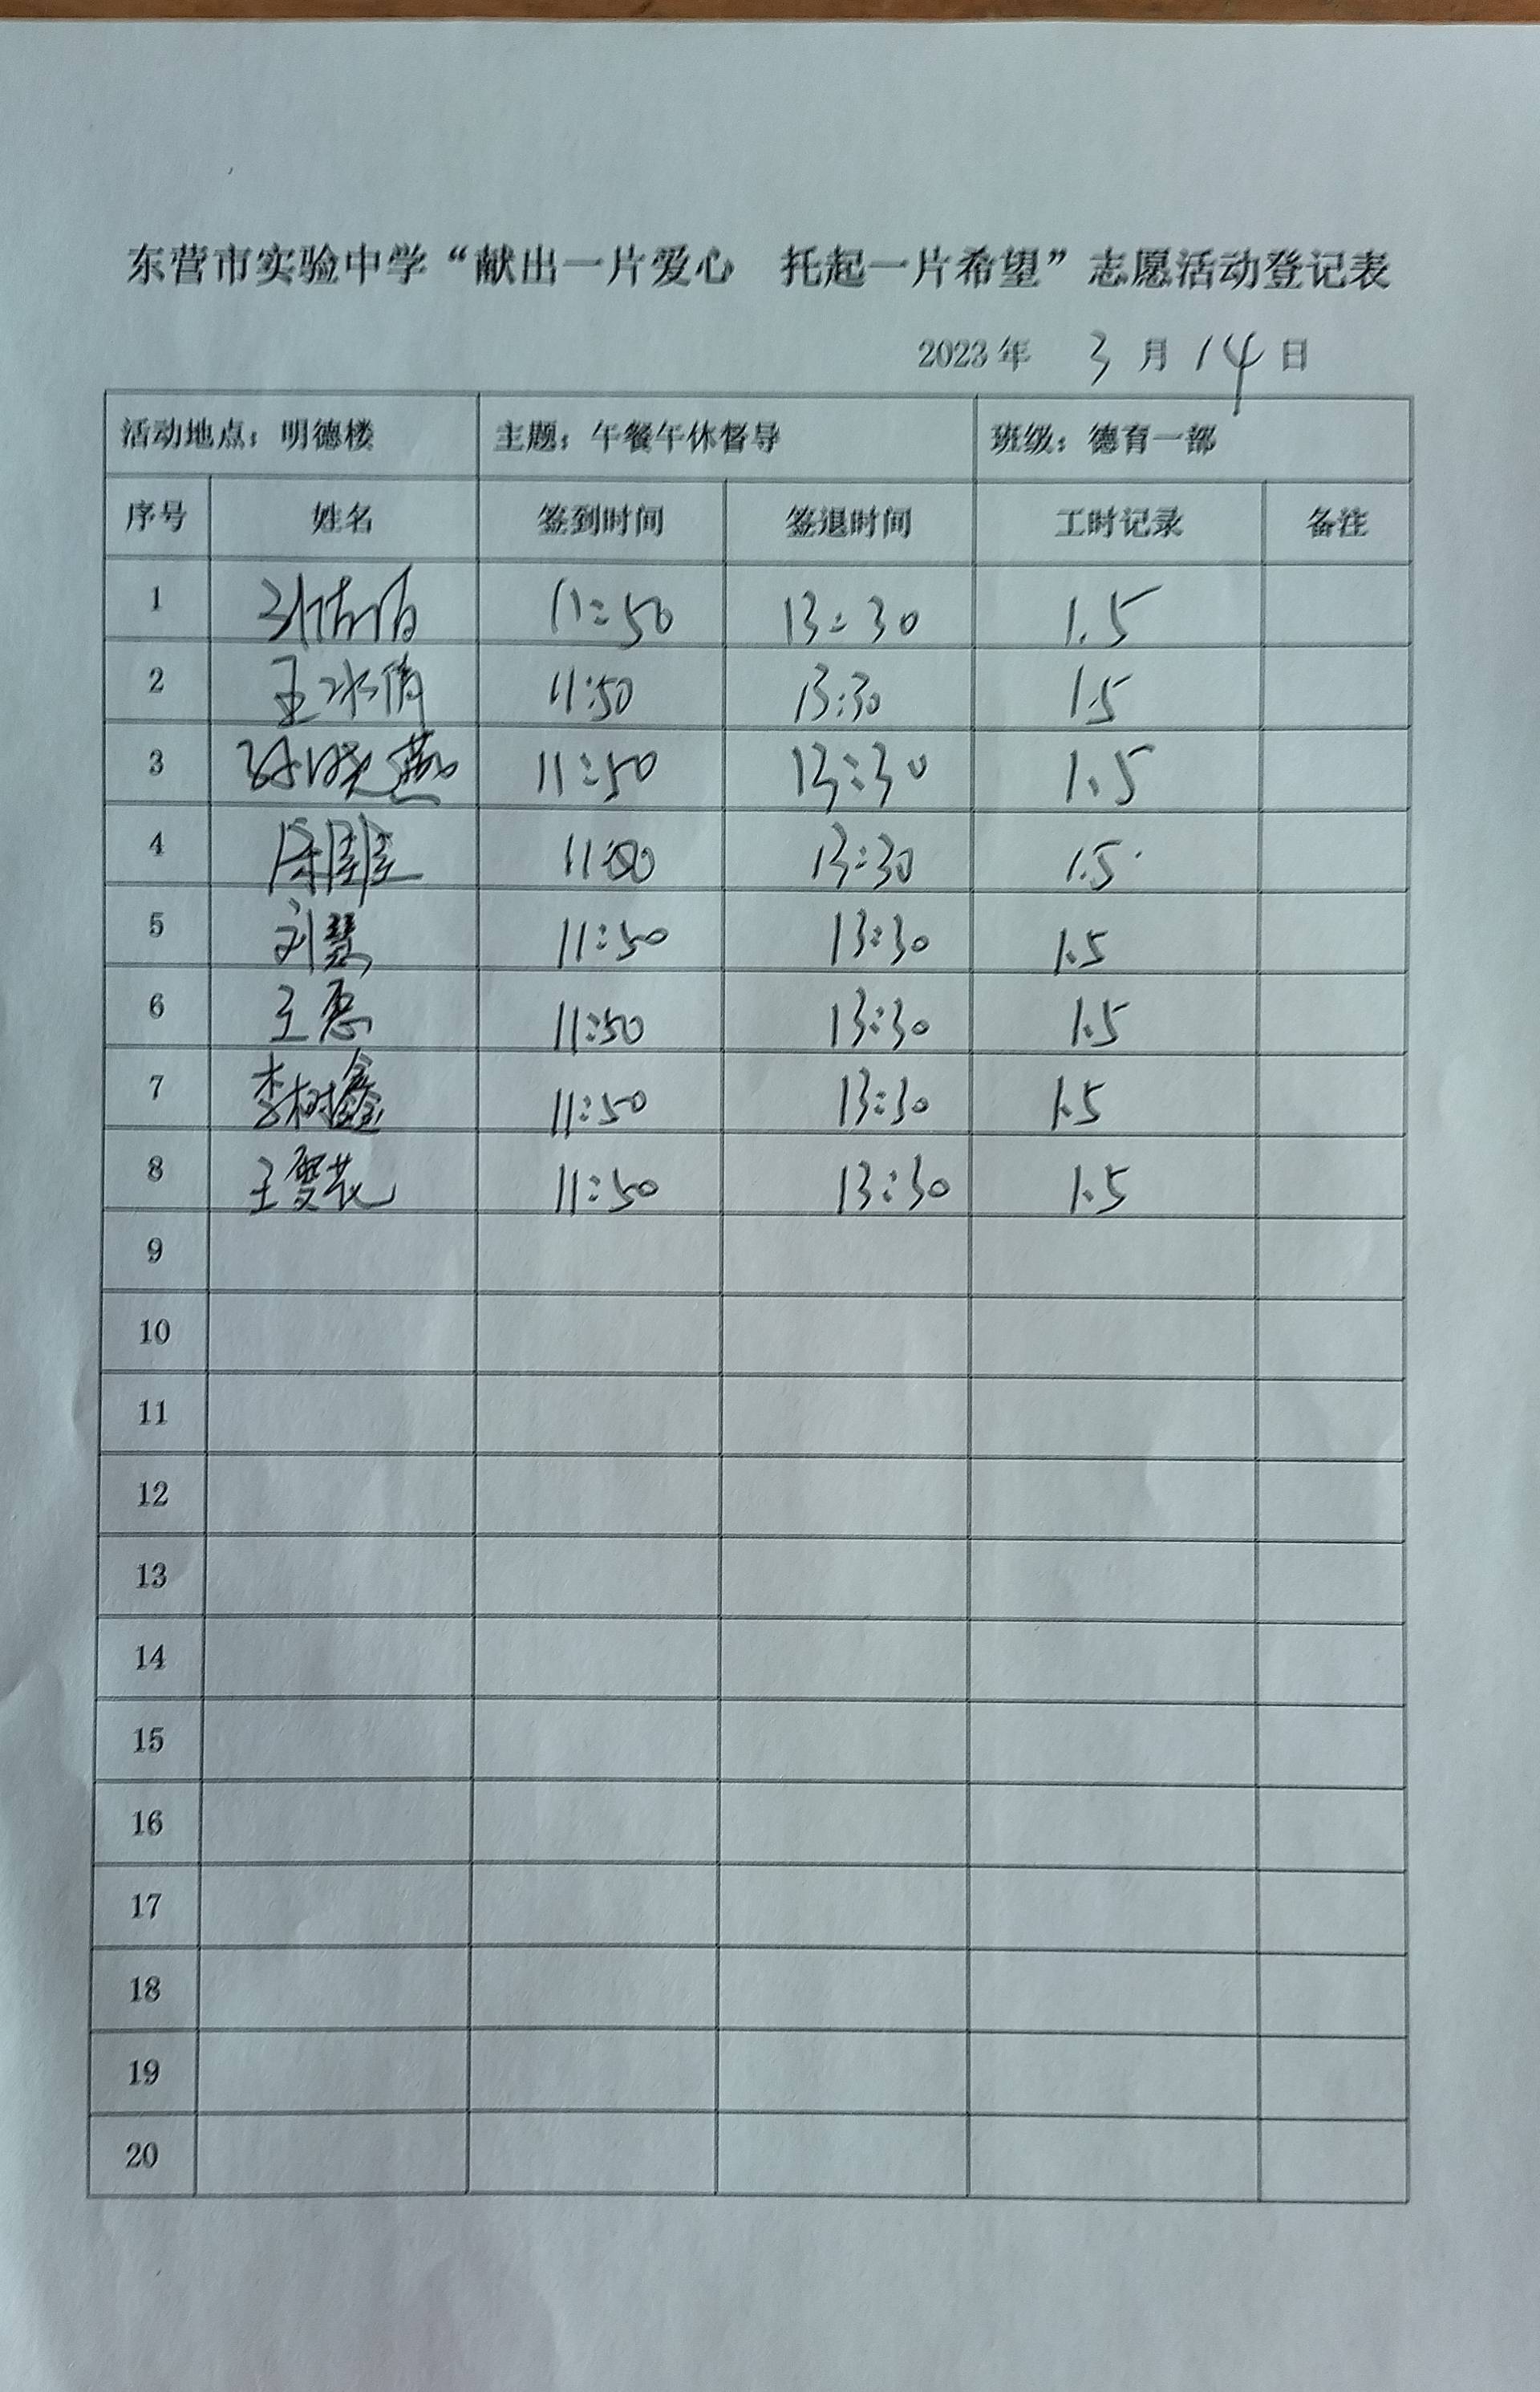 东营市实验中学“献出一片爱心 托起一片希望”志愿活动登记表
2023年 3 月 14 日
活动地点：明德楼 主题：午餐午休督导 班级：德育一部
序号 姓名 签到时间 签退时间 工时记录 备注
1 11:50 13:30 1.5
2 王冰倩 11:50 13:30 1.5
3 孙晓燕 11:50 13:30 1.5
4 13:30 1.5
5 刘慧 11:50 13:30 1.5
6 王惠 11:50 13:30 1.5
7 李树鑫 11:50 13:30 1.5
8 王雯花 11:50 13:30 1.5
9
10
11
12
13
14
15
16
17
18
19
20